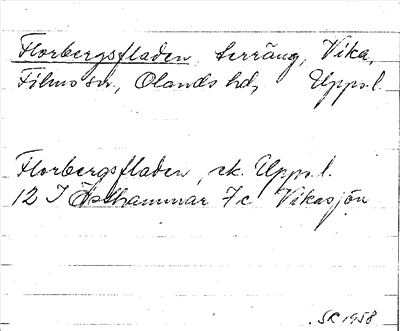 Florbergsfladen, terräng, Vika,
Films sn., Olands hd, Upps.l.
Florbergsfladen, ek. Upps.l.
12 I Östhammar 7c Vikasjön
SR 1958